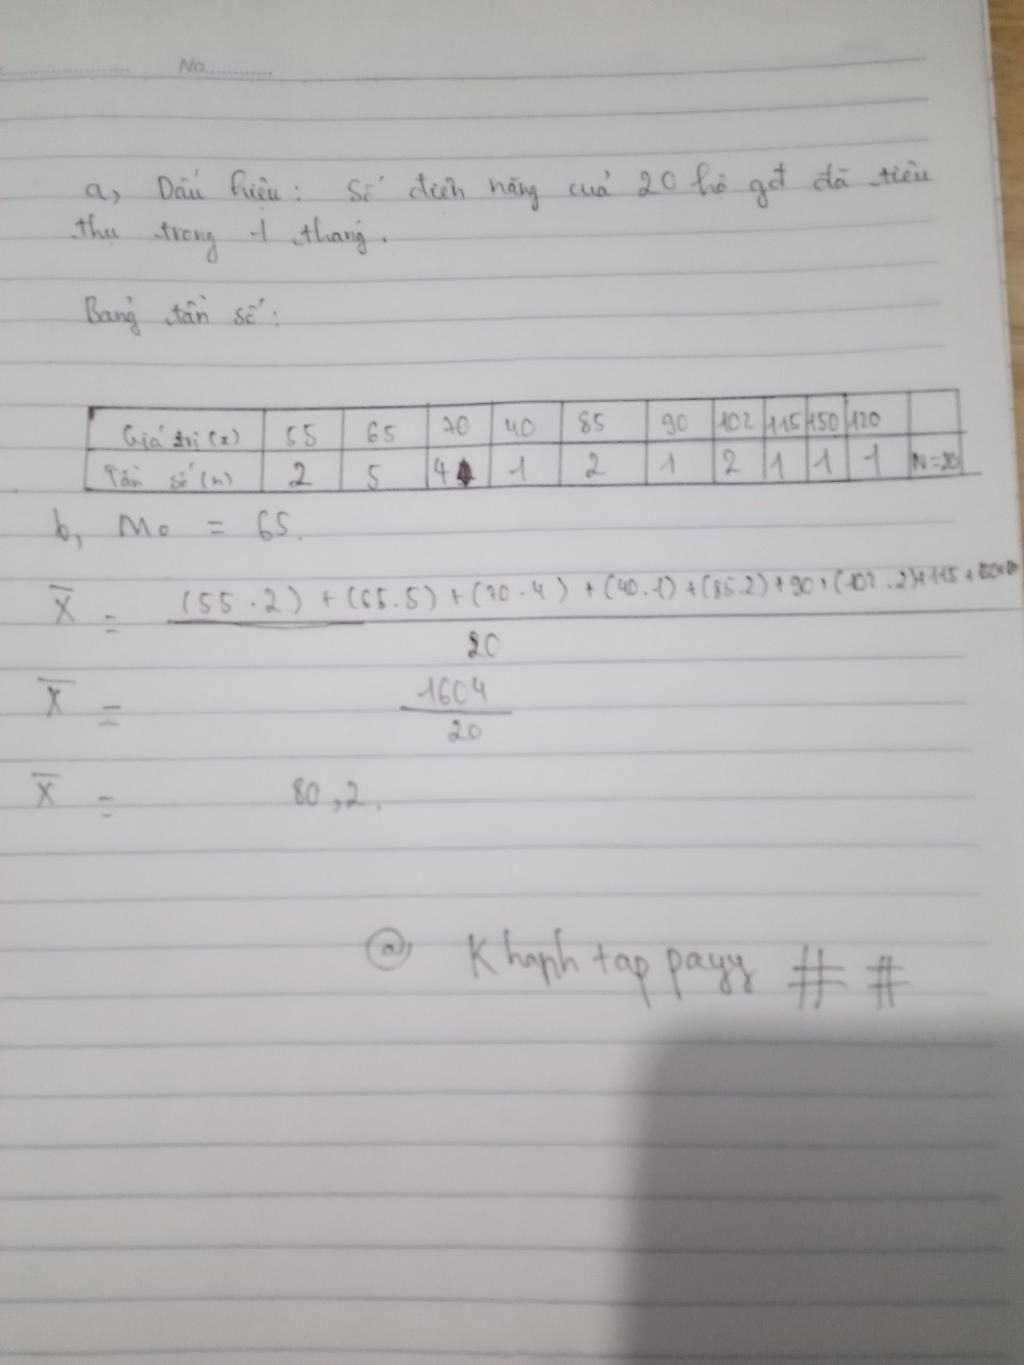 No
a, Dấu hiệu: Số điện năng của 20 hộ gđ đã tiêu
thụ trong 1 tháng.
Bảng tần số:
Giá trị (x) 55 65 70 40 85 90 102 115 150 120
Tần số (n) 2 5 4 1 2 1 2 1 1 1 N=20
b, Mo = 65.
X̄ = (55.2) + (65.5) + (70.4) + (40.1) + (85.2) + 90 + (102.2) + 115 +
20
X̄ = 1604
20
X̄ = 80,2.
@ Khanh tap payy # #